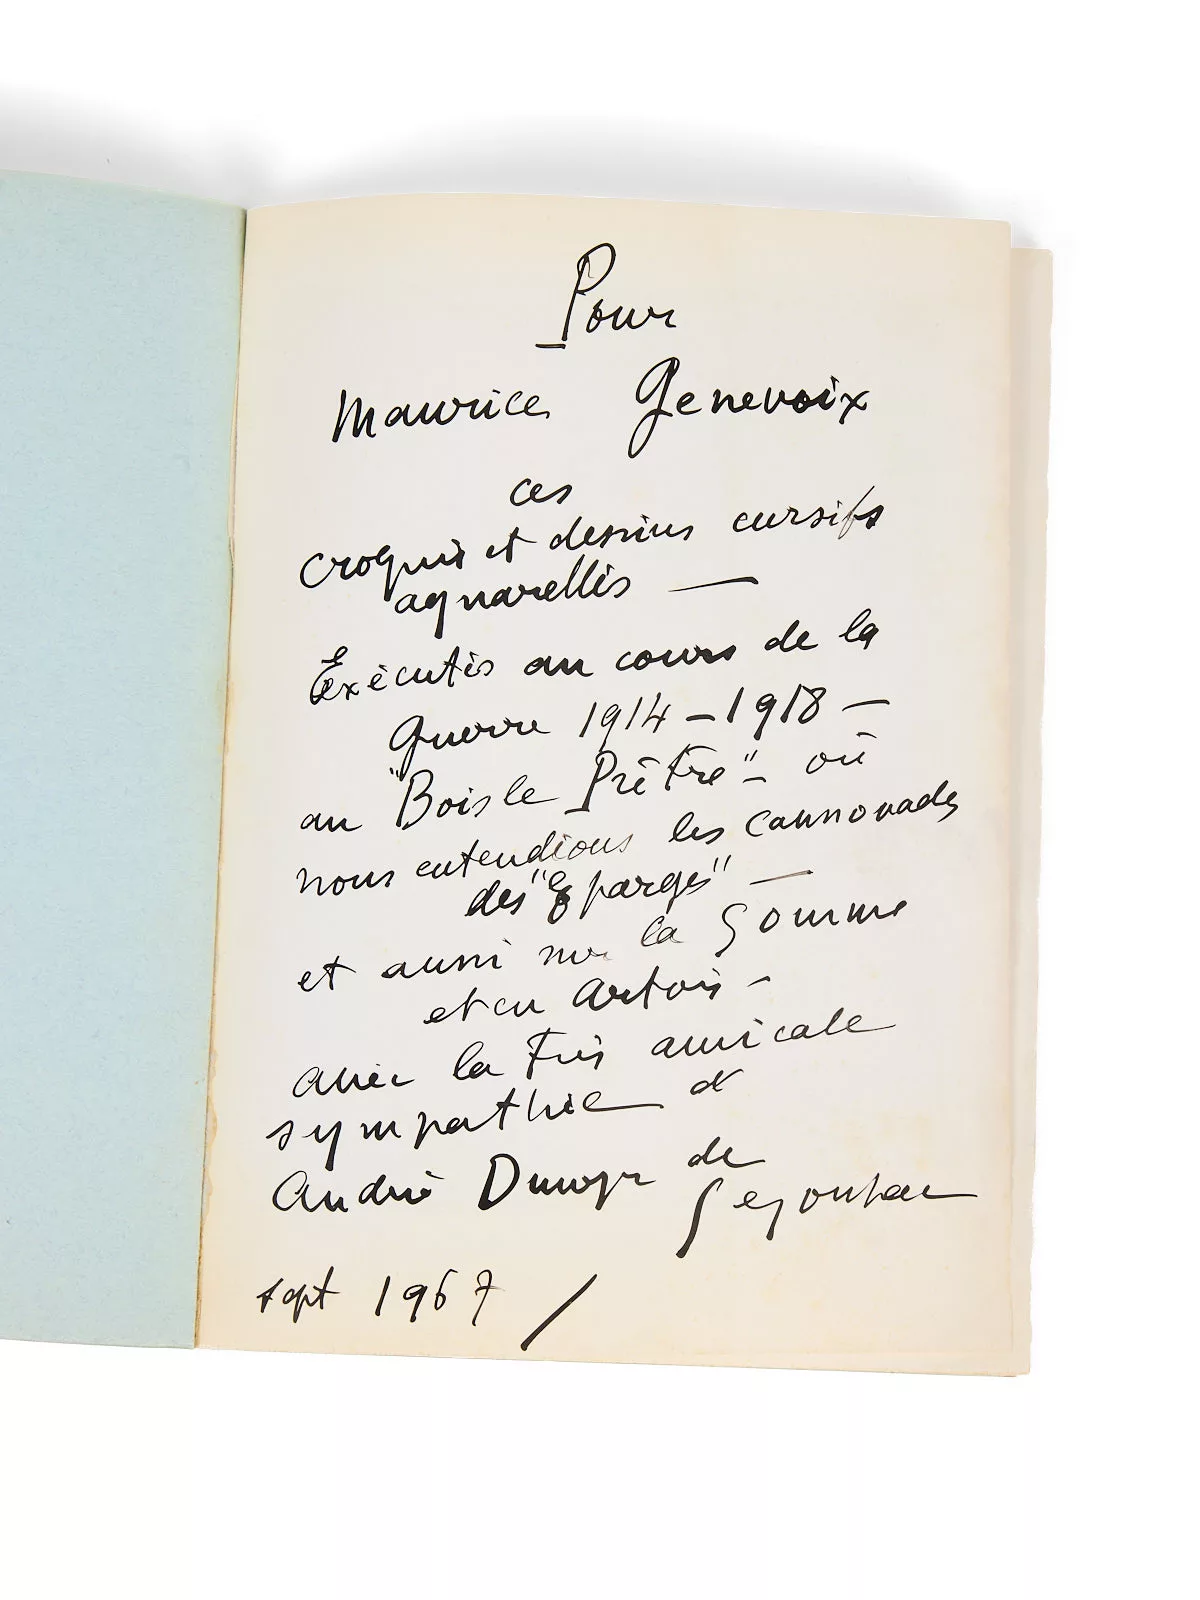 Pour
Maurice Genevoix
ces
croquis et dessins cursifs
aquarellés —
Exécutés au cours de la
Guerre 1914 - 1918 —
au "Bois le Prêtre" - où
nous entendions les cannonades
des "Eparges" —
et aussi sur la Somme
et en Artois -
avec la très amicale
sympathie d'
André Dunoyer de
Segonzac
sept 1967 /